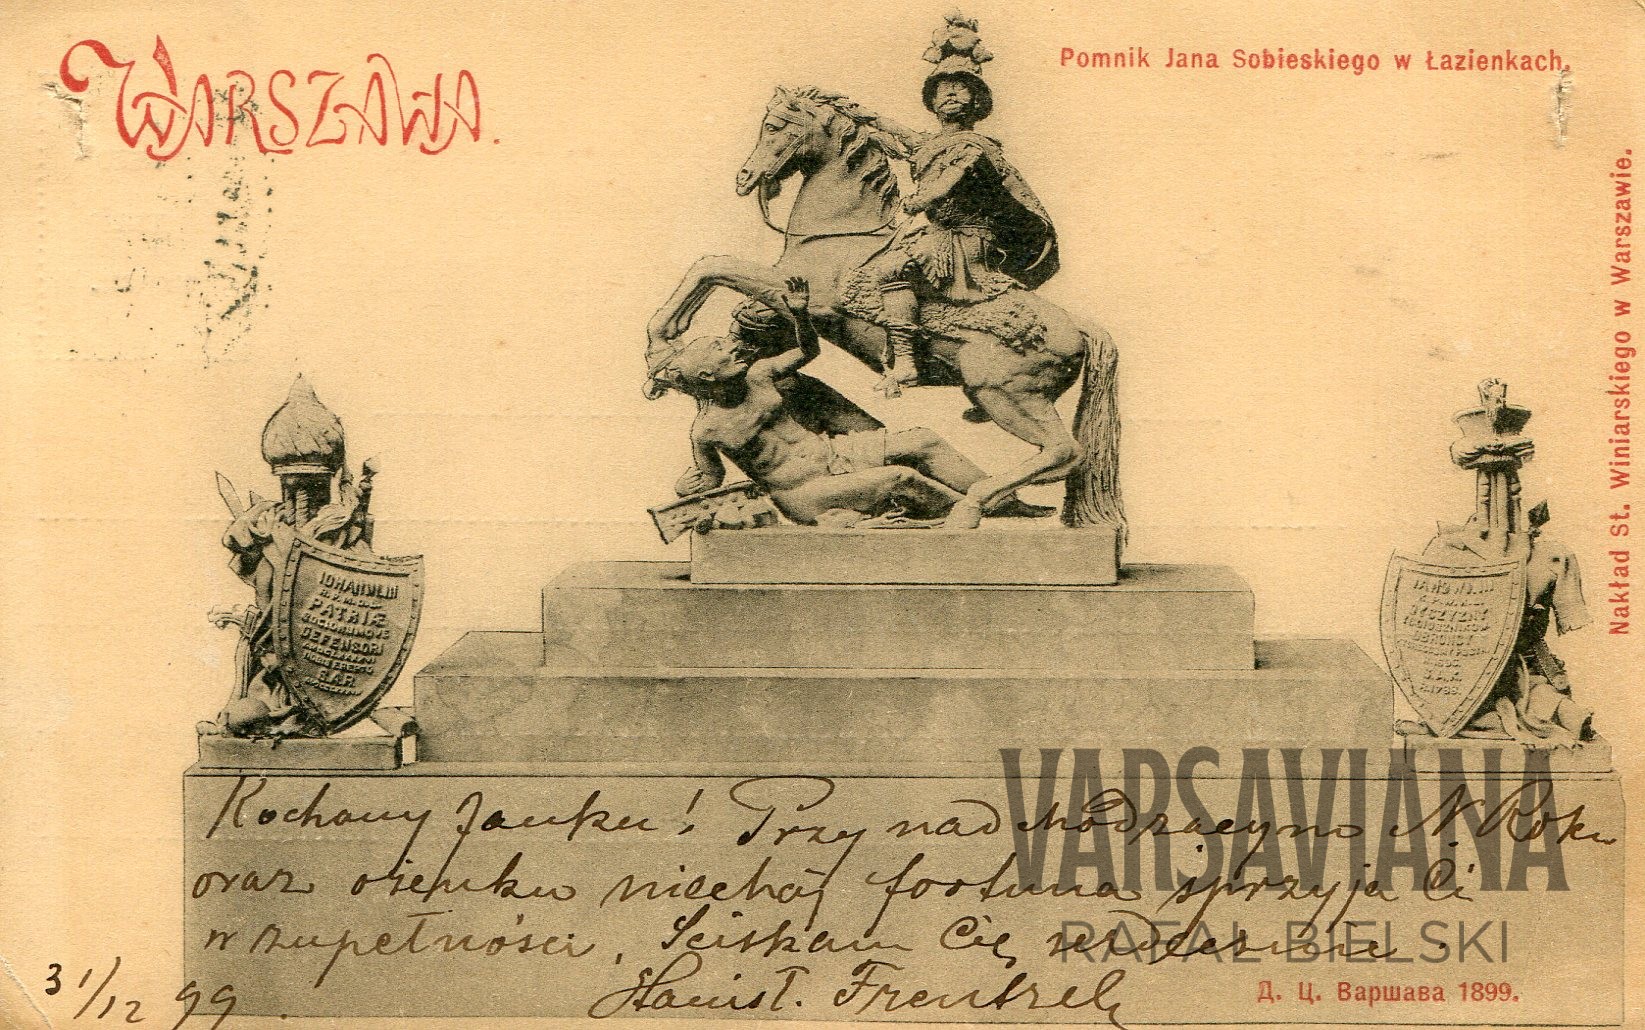 WARSZAWA.
Pomnik Jana Sobieskiego w Łazienkach.
Nakład St. Winiarskiego w Warszawie.
IOHANNI III
PATRIÆ
DEFENSORI
S.A.R.
OYCZYZNY
OBRONCY
S.A.R.
Kochany Janku! Przy nadchodzacym N Roku
oraz ożenku niechaj fortuna sprzyja Ci
w zupełności. Sciskam Cię serdecznie.
Stanisł. Frentzel
31/12 99.
VARSAVIANA
RAFAŁ BIELSKI
Д. Ц. Варшава 1899.